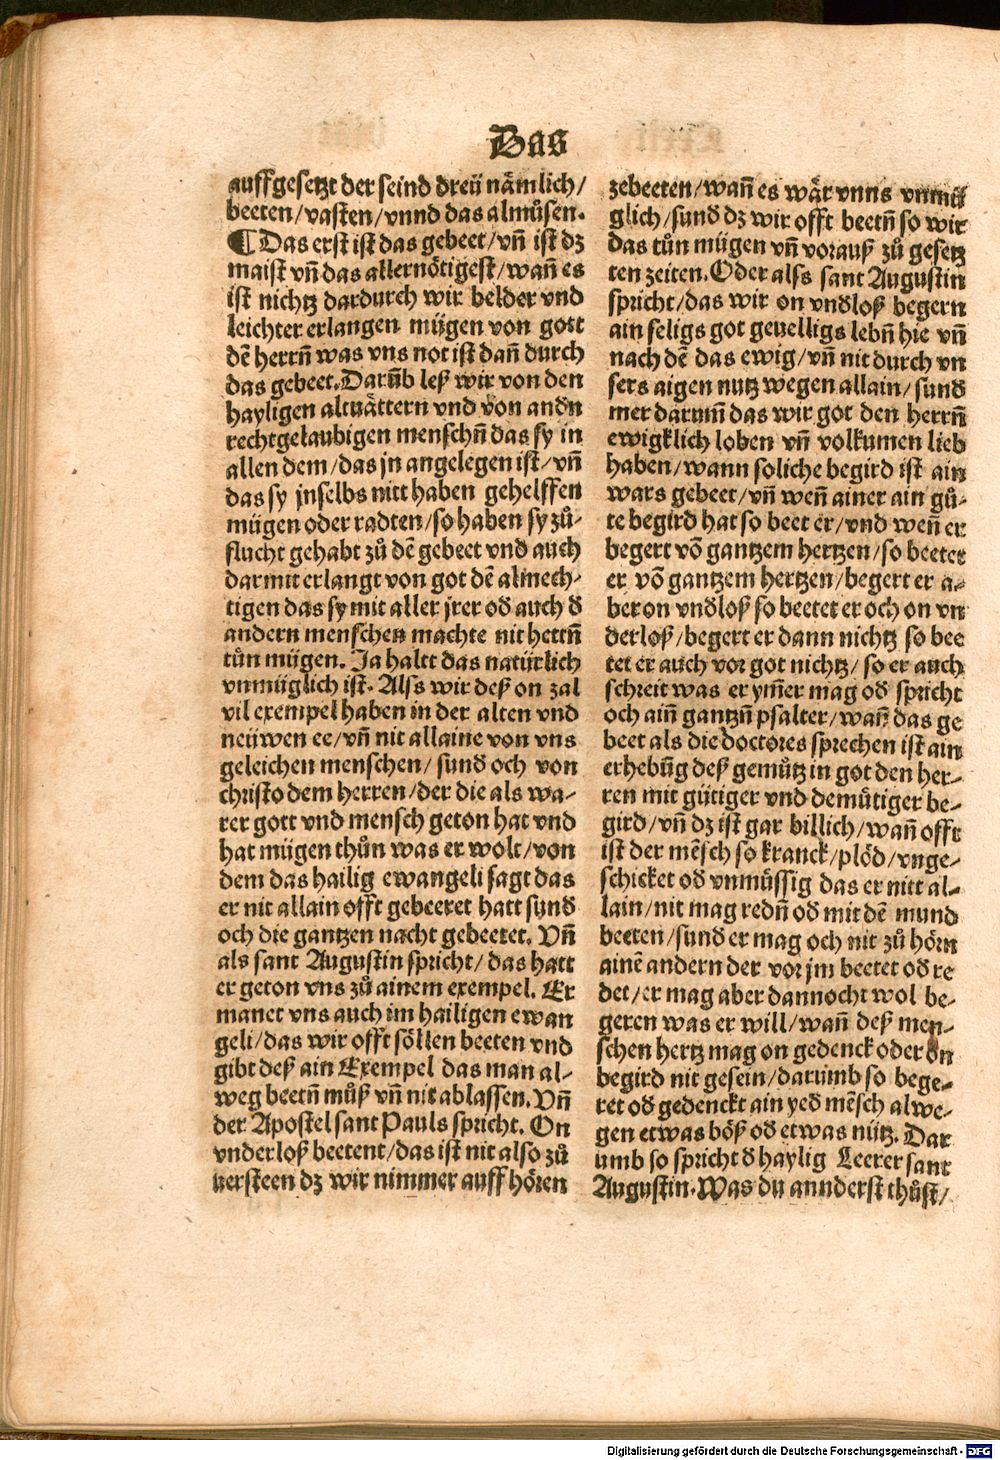 Das
auffgesetzt der seind dreü nämlich/
beeten/vasten/vnnd das almůsen.
¶ Das erst ist das gebeet/vñ ist dz
maist vñ das allernötigest/wañ es
ist nichtz dardurch wir belder vnd
leichter erlangen mügen von gott
dē herrñ was vns not ist dañ durch
das gebeet. Darũb leß wir von den
hayligen altuättern vnd von andn
rechtgelaubigen menschñ das sy in
allen dem/das jn angelegen ist/vñ
das sy jnselbs nitt haben gehelffen
mügen oder radten/so haben sy zů-
flucht gehabt zů dē gebeet vnd auch
darmit erlangt von got dē almech-
tigen das sy mit aller jrer od auch d
andern menschen machte nit hettñ
tůn mügen. Ja haltt das natürlich
vnmüglich ist. Alss wir deß on zal
vil exempel haben in der alten vnd
neüwen ee/vñ nit allaine von vns
geleichen menschen/sund och von
christo dem herren/der die als wa-
rer gott vnd mensch geton hat vnd
hat mügen thůn was er wolt/von
dem das hailig ewangeli sagt das
er nit allain offt gebeeret hatt sund
och die gantzen nacht gebeetet. Vñ
als sant Augustin spricht/das hatt
er geton vns zů ainem exempel. Er
manet vns auch im hailigen ewan
geli/das wir offt söllen beeten vnd
gibt deß ain Exempel das man al-
weg beetñ můß vñ nit ablassen. Vñ
der Apostel sant Pauls spricht. On
vnderloß beetent/das ist nit also zů
uersteen dz wir nimmer auff hören
zebeeten/wañ es wär vnns vnmü
glich/sund dz wir offt beetñ so wir
das tůn mügen vñ vorauß zů gesetz
ten zeiten. Oder alss sant Augustin
spricht/das wir on vndloß begern
ain seligs got geuelligs lebñ hie vñ
nach dē das ewig/vñ nit durch vn
sers aigen nutz wegen allain/sund
mer darumm das wir got den herrñ
ewigklich loben vñ volkumen lieb
haben/wann soliche begird ist ain
wars gebeet/vñ weñ ainer ain gů-
te begird hat so beet er/vnd weñ er
begert vō gantzem hertzen/so beetet
er vō gantzem hertzen/begert er a-
ber on vndloß so beetet er och on vn
derloß/begert er dann nichtz so bee
tet er auch vor got nichtz/so er auch
schreit was er ym̃er mag od spricht
och aiñ gantzñ psalter/wañ das ge
beet als die doctores sprechen ist ain
erhebũg deß gemůtz in got den her-
ren mit gütiger vnd demůtiger be-
gird/vñ dz ist gar billich/wañ offt
ist der mēsch so kranck/plöd/vnge-
schicket od vnmüssig das er nitt al-
lain/nit mag redñ od mit dē mund
beeten/sund er mag och nit zů hörn
ainē andern der vor jm beetet od re
det/er mag aber dannocht wol be-
geren was er will/wañ deß men-
schen hertz mag on gedenck oder on
begird nit gesein/darumb so bege-
ret od gedenckt ain yed mēsch alwe-
gen etwas böß od etwas nütz. Dar
umb so spricht d haylig Leerer sant
Augustin. Was du annderst thůst/
Digitalisierung gefördert durch die Deutsche Forschungsgemeinschaft - DFG